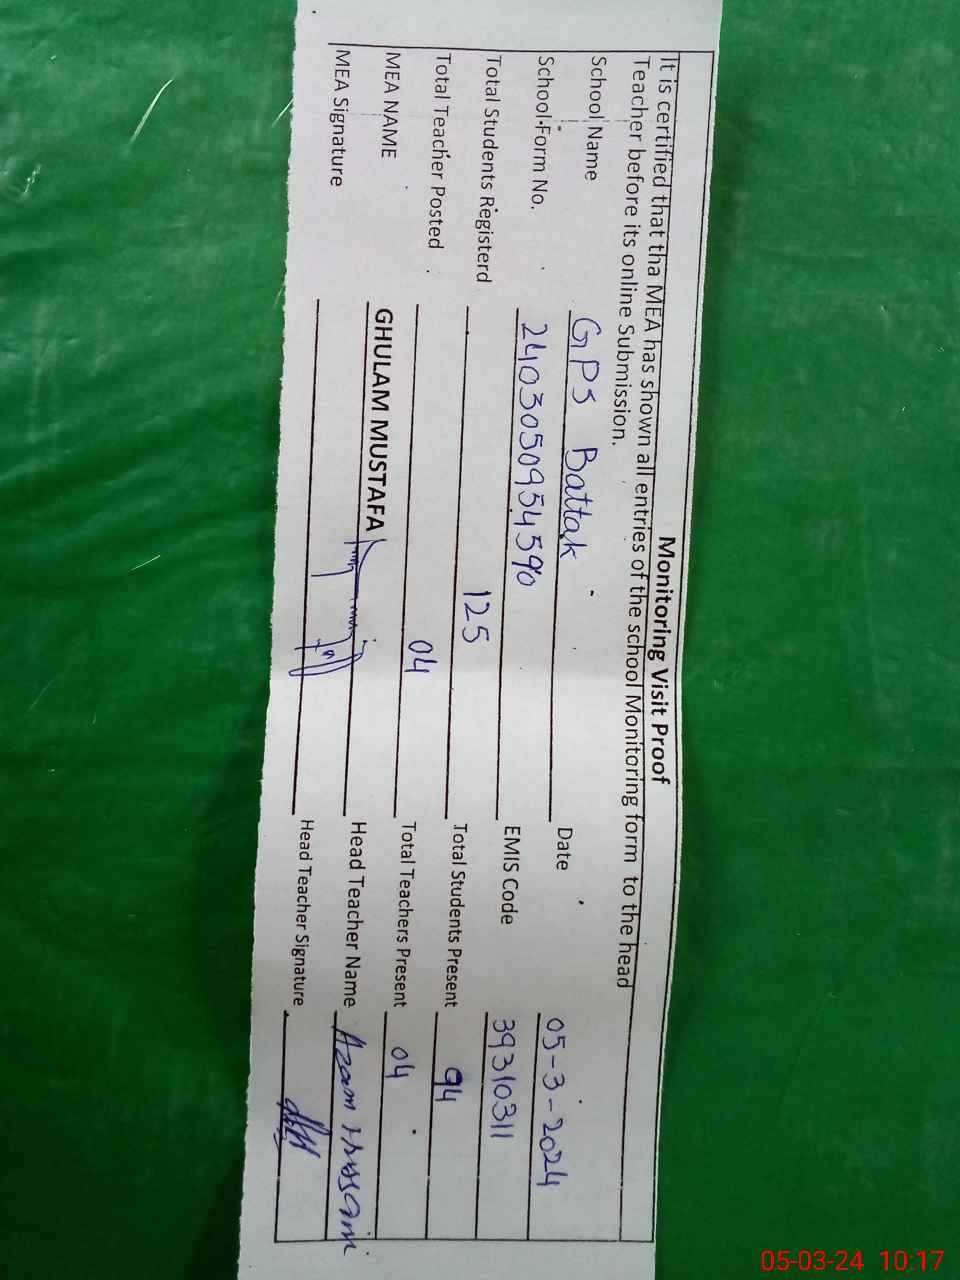 Monitoring Visit Proof
It is certified that tha MEA has shown all entries of the school Monitoring form to the head
Teacher before its online Submission.
School Name GPS Battak Date 05-3-2024
School-Form No. 240305095459 EMIS Code 39310311
Total Students Registerd 125 Total Students Present 94
Total Teacher Posted 04 Total Teachers Present 04
MEA NAME GHULAM MUSTAFA Head Teacher Name Azam Hussain
MEA Signature Head Teacher Signature
05-03-24 10:17